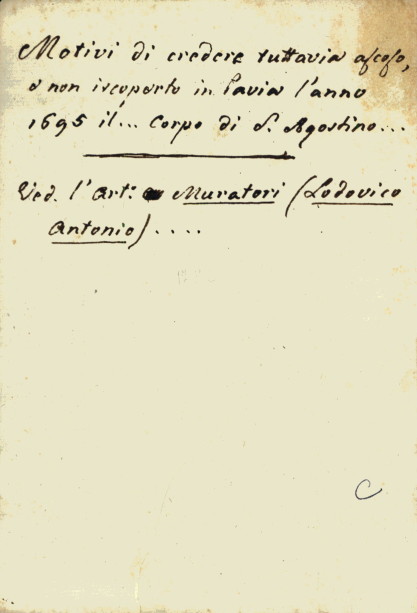 Motivi di credere tuttavia ascoso,
e non iscoperto in Pavia l'anno
1695 il... Corpo di S. Agostino...
Ved. l'Art.º Muratori (Lodovico
Antonio)....
C